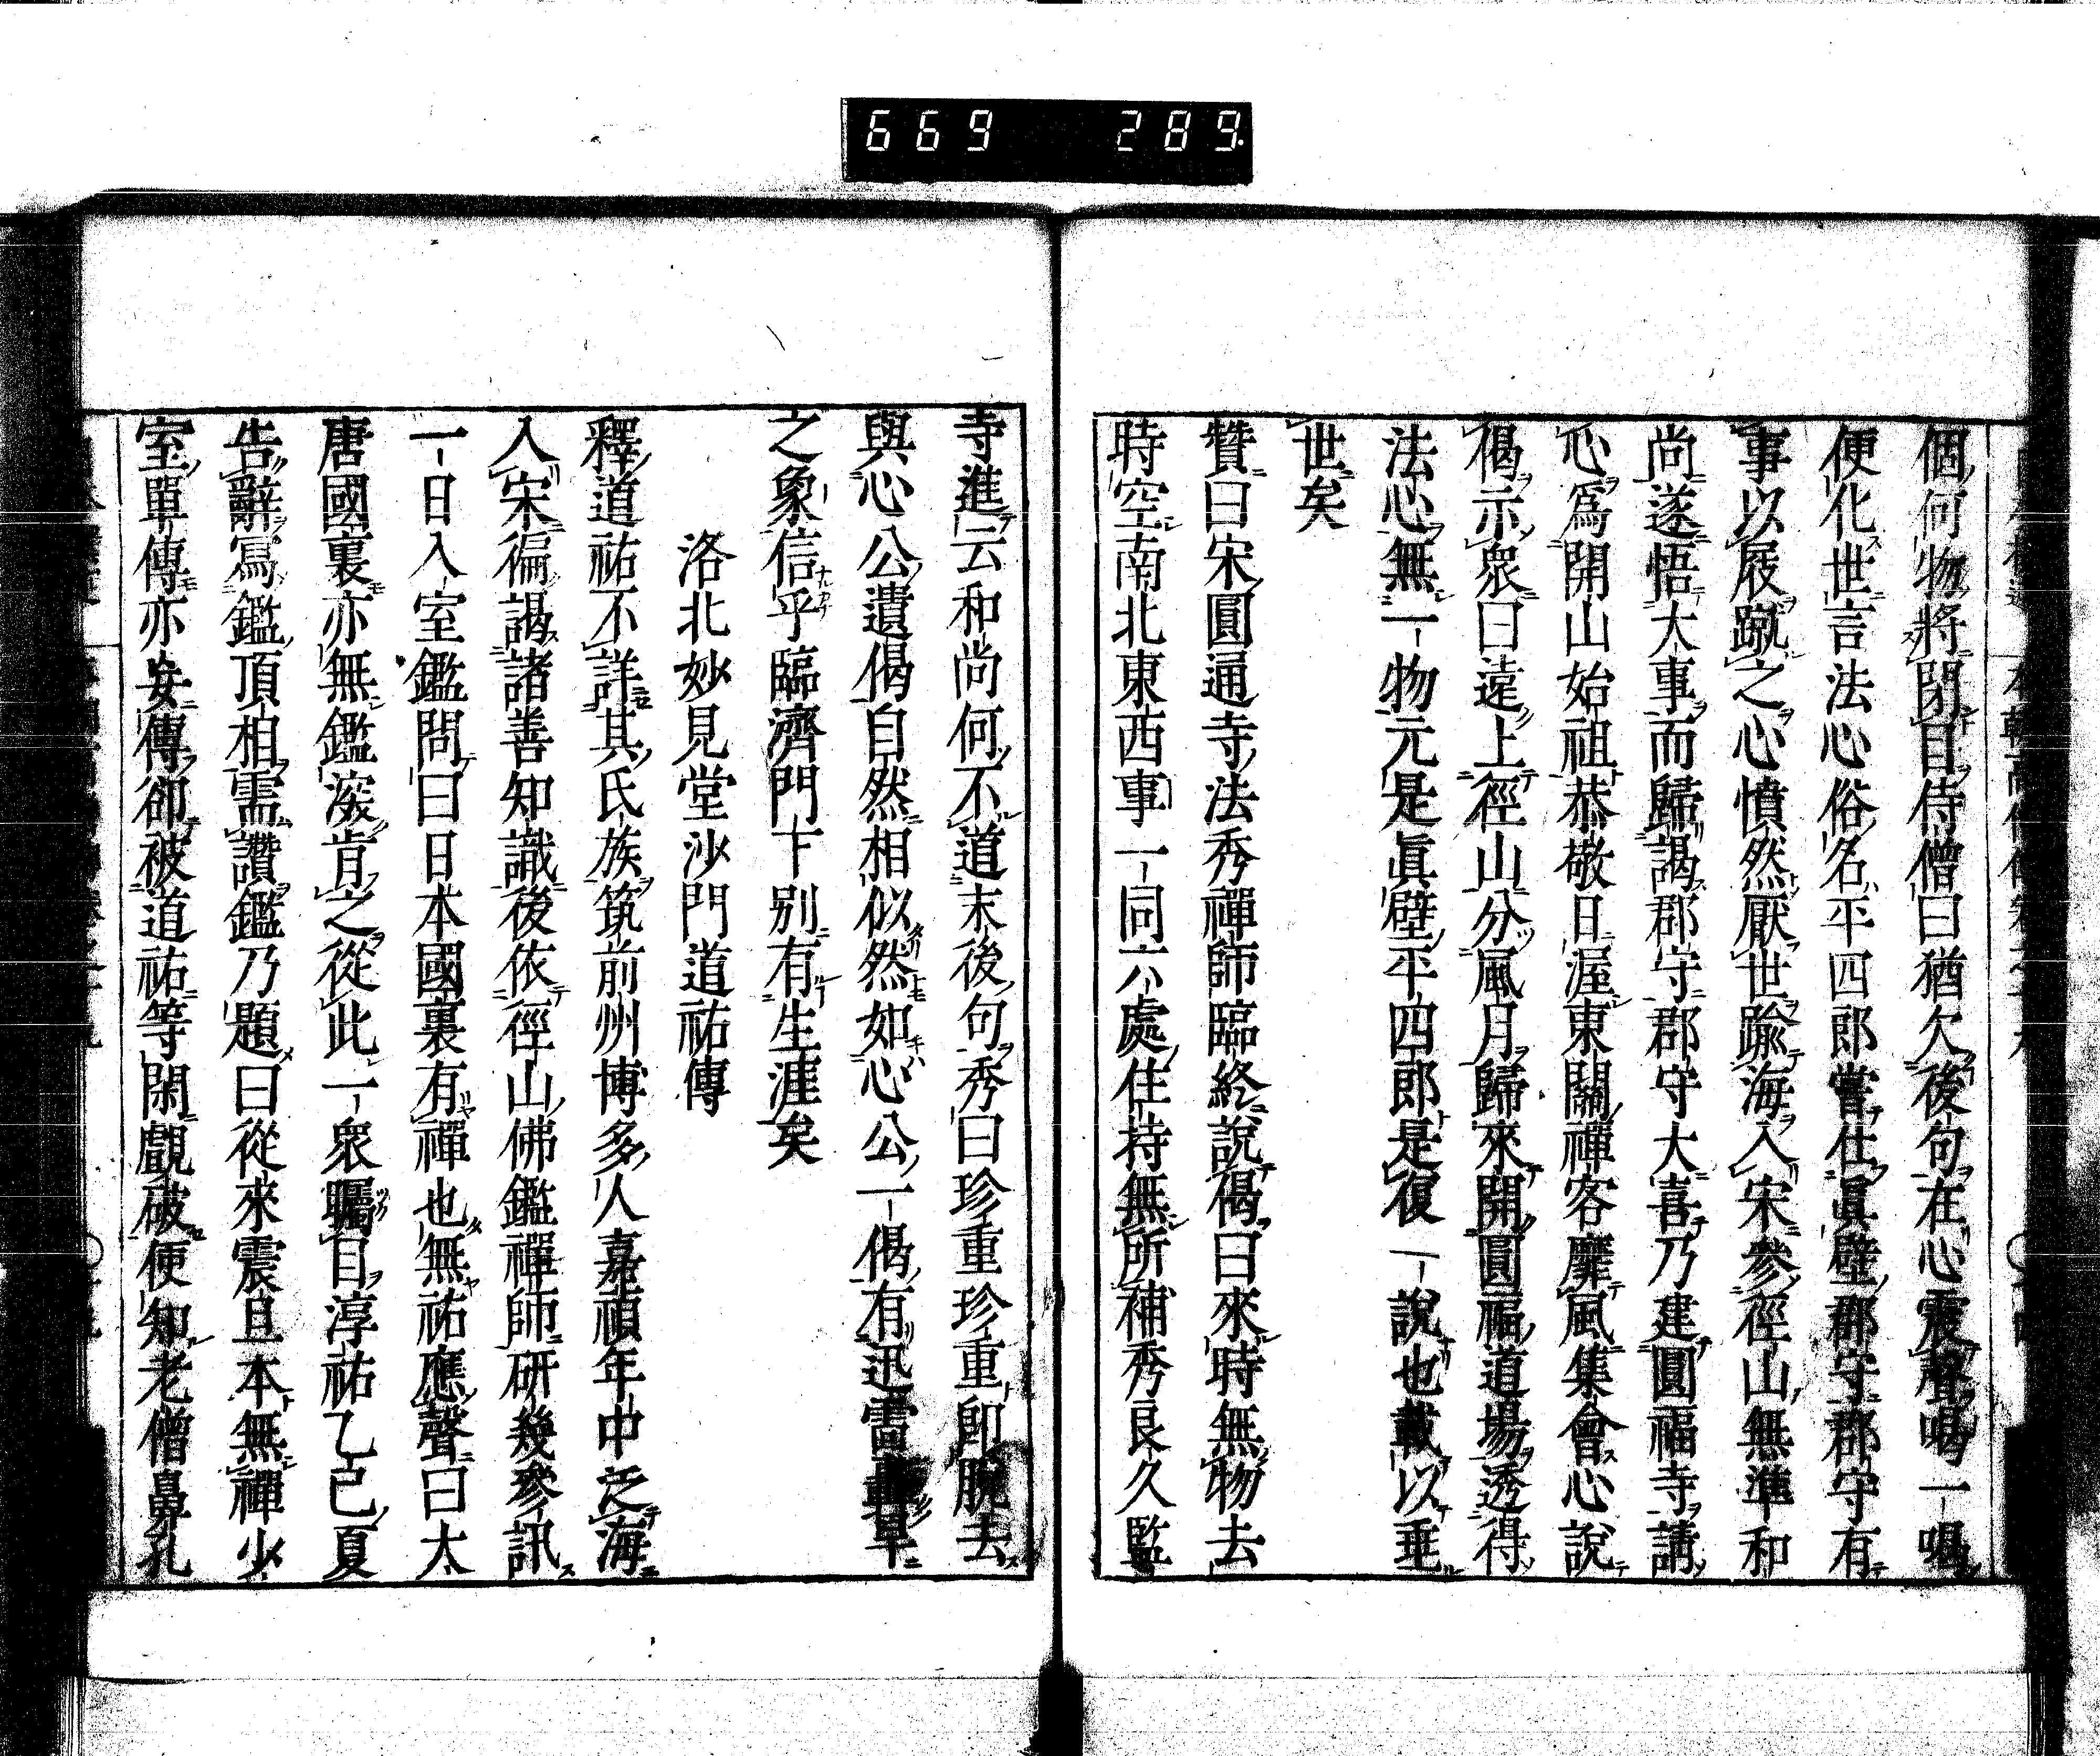 669 289
個何物將閉目侍僧曰猶欠後句在心震聲喝一喝
便化世言法心俗名平四郎嘗仕眞壁郡守郡守有
事以屐蹴之心憤然厭世踰海入宋參徑山無準和
尚遂悟大事而歸謁郡守郡守大喜乃建圓福寺請
心爲開山始祖恭敬日渥東關禪客靡風集會心說
偈示衆曰遠上徑山分風月歸來開圓福道場透得
法心無一物元是眞壁平四郎是復一說也載以垂
世矣
贊曰宋圓通寺法秀禪師臨終說偈曰來時無物去
時空南北東西事一同六處住持無所補秀良久監
寺進云和尚何不道末後句秀曰珍重珍重卽脫去
與心公遺偈自然相似然如心公一偈有迅雷草
之象信乎臨濟門下別有生涯矣
洛北妙見堂沙門道祐傳
釋道祐不詳其氏族筑前州博多人嘉禎年中泛海
入宋徧謁諸善知識後依徑山佛鑑禪師研幾參訊
一日入室鑑問曰日本國裏有禪也無祐應聲曰太
唐國裏亦無鑑深肯之從此一衆矚目淳祐乙巳夏
告辭寫鑑頂相需讚鑑乃題曰從來震旦本無禪少
室單傳亦妄傳卻被道祐等閑覷破便知老僧鼻孔